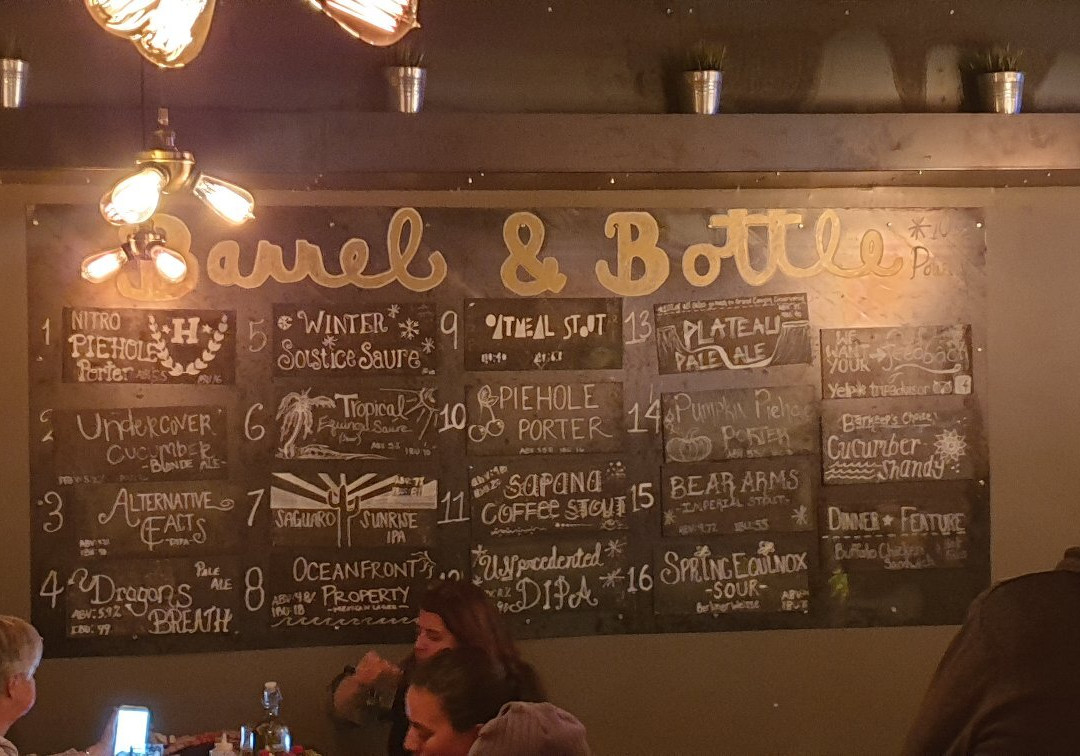 Barrel & Bottle
1
NITRO
PIEHOLE
Porter
H
2
UNDERCOVER
CUCUMBER
-BLONDE ALE-
3
ALTERNATIVE
FACTS
-DIPA-
4
Dragons
BREATH
PALE
ALE
ABV: 5.9%
IBU: 99
5
WINTER
Solstice Saure
6
Tropical
Equinox Saure
7
SAGUARO SUNRISE
IPA
8
OCEANFRONT
PROPERTY
-MEXICAN LAGER-
9
OATMEAL STOUT
10
PIEHOLE
PORTER
11
SAPANA
COFFEE STOUT
UNprecedented
DIPA
13
PLATEAU
PALE ALE
14
Pumpkin Piehole
PORTER
15
BEAR ARMS
-IMPERIAL STOUT-
16
SPRING EQUINOX
-SOUR-
Berliner Weisse
WE
WANT
YOUR → feedback
Yelp tripadvisor f
Barkeep's Choice
Cucumber
Shandy
DINNER ★ FEATURE
Buffalo Chicken
Sandwich